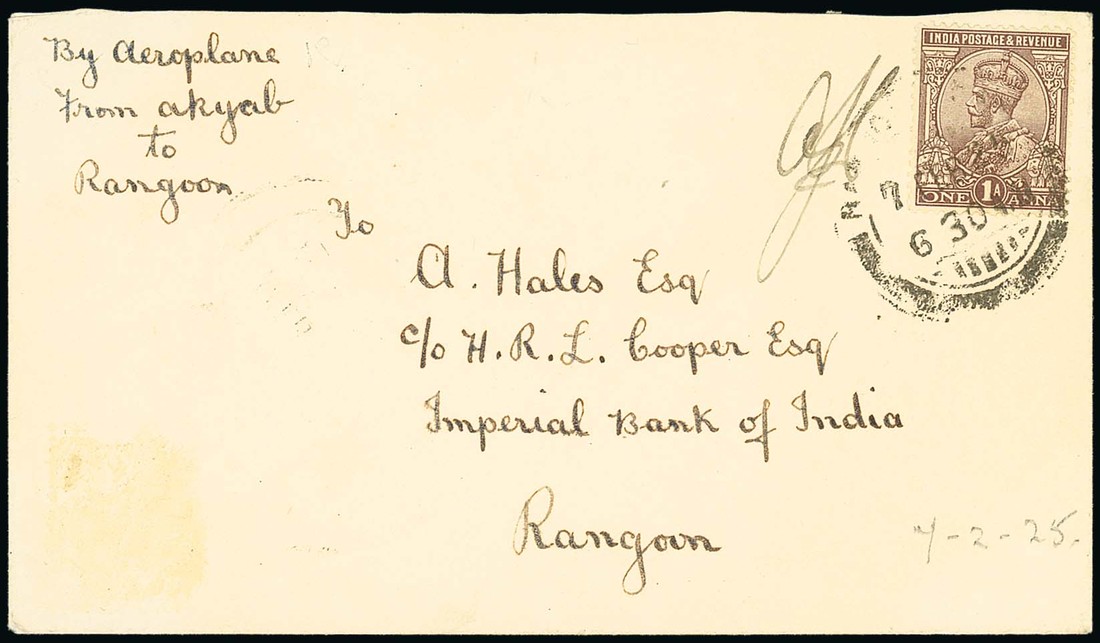 By Aeroplane
From Akyab
to
Rangoon
INDIA POSTAGE & REVENUE
ONE 1A ANNA
7
6 30
To
A. Hales Esq
c/o H. R. L. Cooper Esq
Imperial Bank of India
Rangoon
7-2-25.